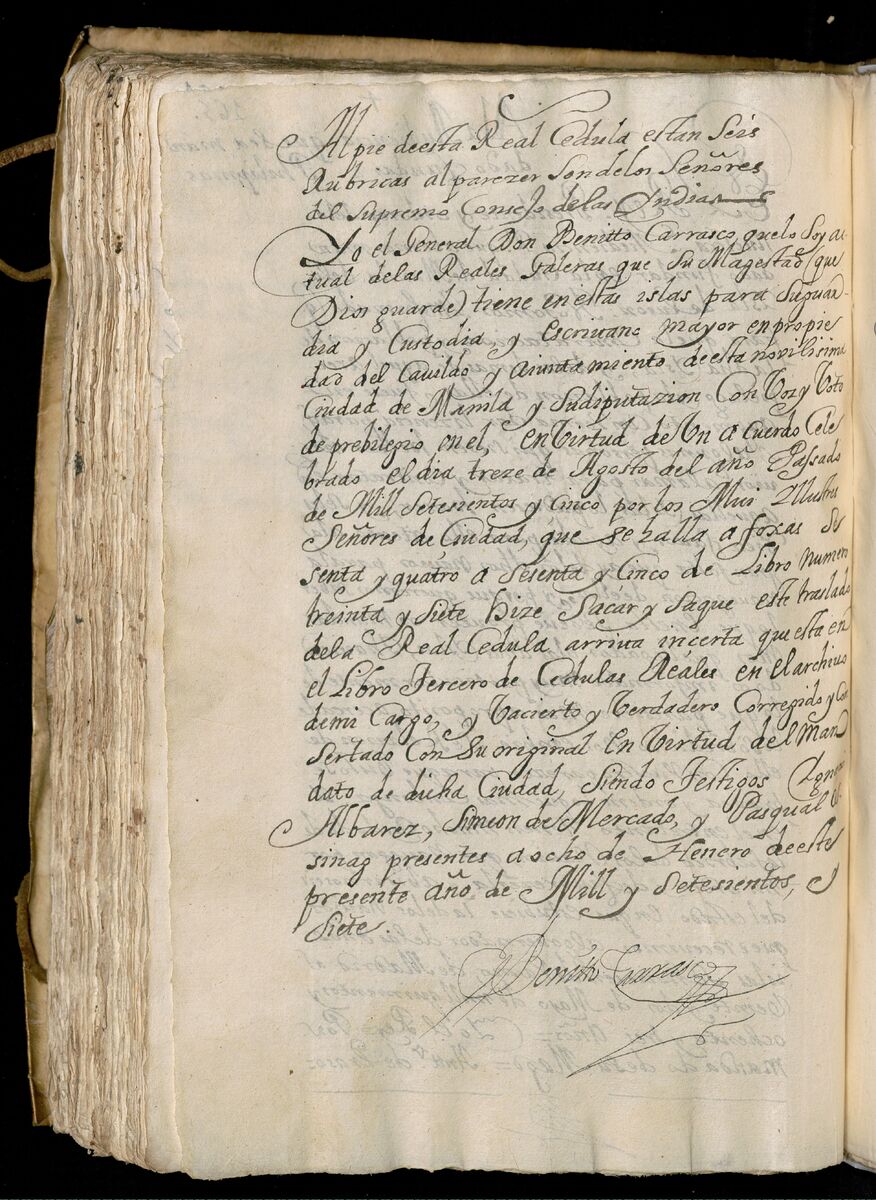 Al pie de esta Real Cedula estan Seis
Rubricas al parezer Son de los Señores
del Supremo Consejo de las Indias
Yo el General Don Benitto Carrasco que lo Soy ac
tual de las Reales Galeras que Su Magestad (que
Dios guarde) tiene en estas islas para Su guar
dia y Custodia, y Escrivano mayor en propie
dad del Cavildo y aiuntamiento de esta novilisima
Ciudad de Manila y Su diputazion Con Voz y Voto
de prebilegio en el, en Virtud de Un aCuerdo Cele
brado el dia treze de Agosto del año Passado
de Mill Setesientos y Cinco por los Mui Illustres
Señores de Ciudad, que se halla a foxas Se
senta y quatro a Sesenta y Cinco de Libro numero
treinta y Siete hize Sacar y Saque este traslado
de la Real Cedula arriva incerta que esta en
el Libro Tercero de Cedulas Reales en el archivo
de mi Cargo, y Va cierto y Verdadero Corregido y Con
Sertado Con Su original en Virtud del Man
dato de dicha Ciudad, Siendo Testigos
Albarez, Simeon de Mercado, y Pasqual
sinag presentes a ocho de Henero de este
presente año de Mill y Setesientos, y
Siete.
Benitto Carrasco